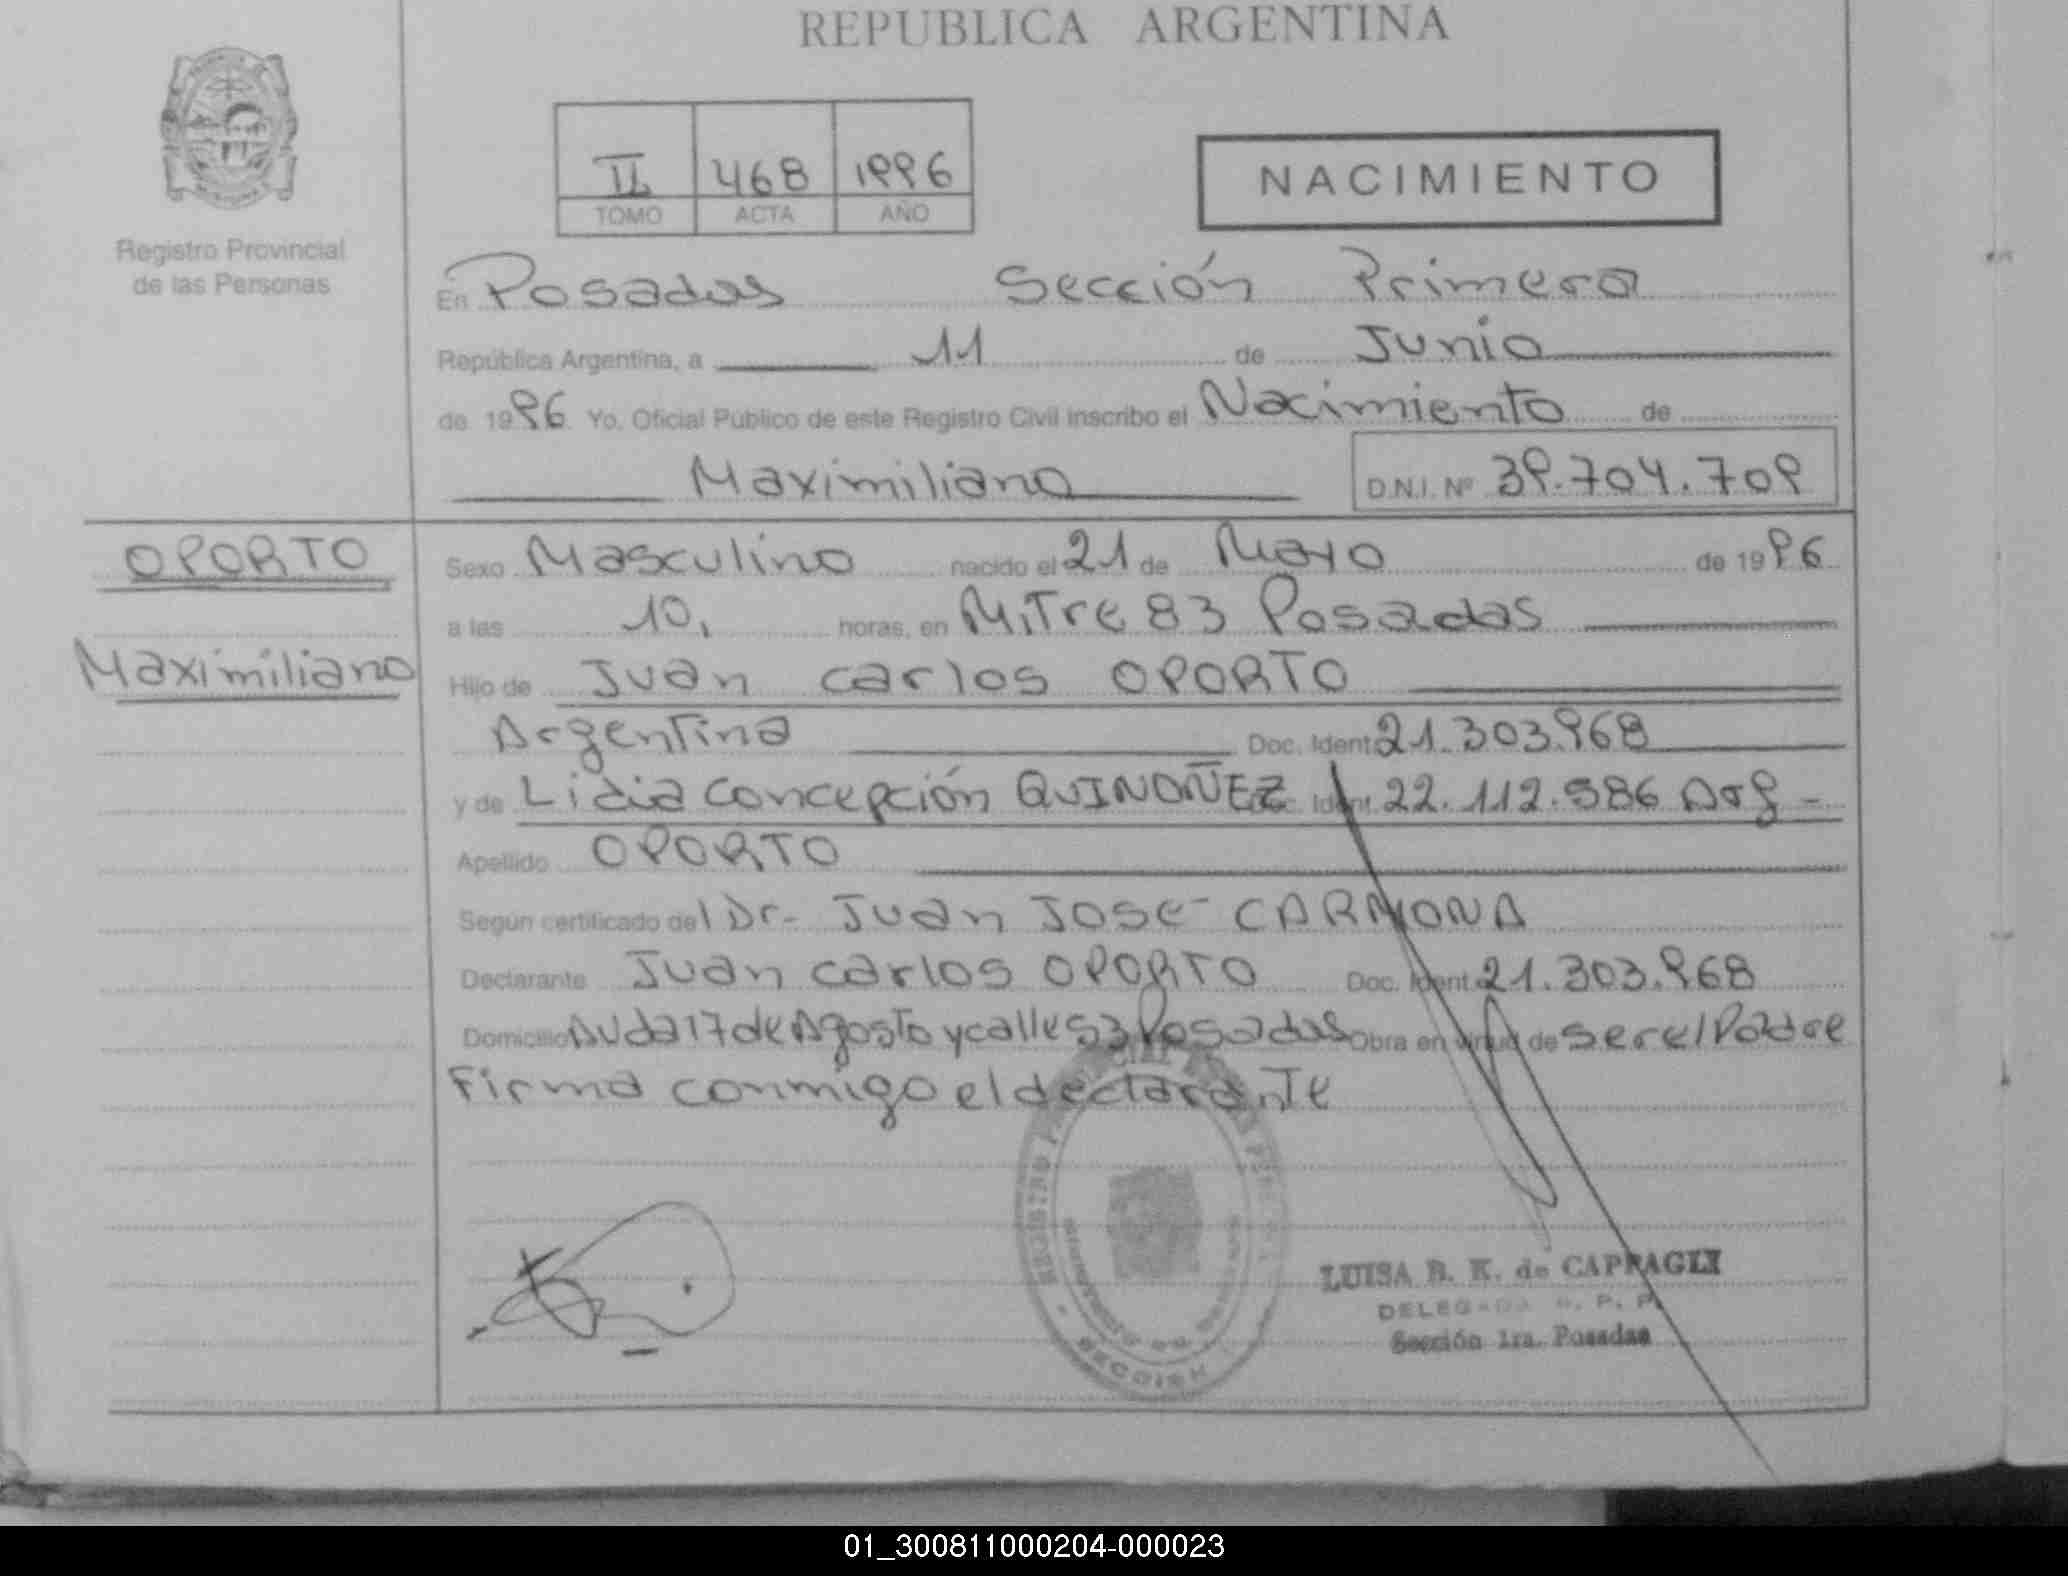 REPUBLICA ARGENTINA
II 468 1996
TOMO ACTA AÑO
NACIMIENTO
Registro Provincial
de las Personas
En Posadas Sección Primera
República Argentina, a 11 de Junio
de 1996 Yo, Oficial Público de este Registro Civil inscribo el Nacimiento de
Maximiliano D.N.I. Nº 39.704.709
OPORTO
Maximiliano
Sexo Masculino nacido el 21 de Mayo de 1996
a las 10, horas, en Mitre 83 Posadas
Hijo de Juan Carlos OPORTO
Argentina Doc. Ident. 21.303.968
y de Lidia Concepción QUINOÑEZ Doc. Ident. 22.112.586 Arg -
Apellido OPORTO
Según certificado del Dr- Juan José CARMONA
Declarante Juan Carlos OPORTO Doc. Ident. 21.303.968
Domicilio Avda 17 de Agosto y calle 53 Posadas Obra en virtud de ser el Padre
Firma conmigo el declarante
LUISA B. K. de CAPPAGLI
DELEGADA R. P. P.
Sección 1ra. Posadas
SECCION
01_300811000204-000023